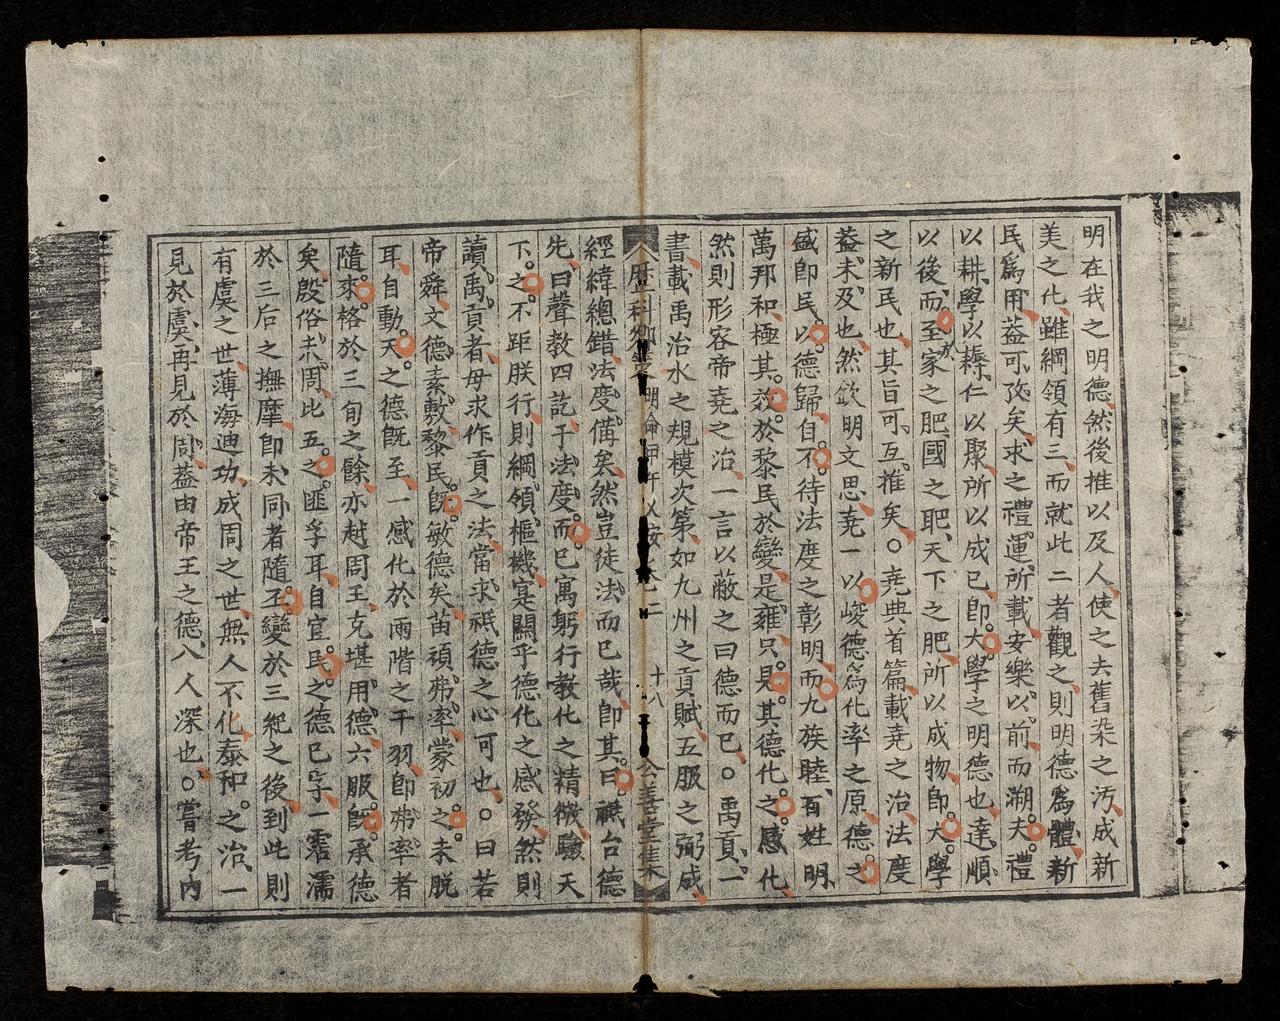 明在我之明德、然後推以及人、使之去舊染之汚成新
美之化、雖綱領有三、而就此二者觀之、則明德爲體、新
民爲用、益可攷矣、求之禮運所載、安樂以前而溯夫禮
以耕、學以耨、仁以聚、所以成已、卽大學之明德也、達順
以後、而至家之肥、國之肥、天下之肥、所以成物、卽大學
之新民也、其旨可互推矣。○堯典首篇、載堯之治、法度
葢未及也、然欽明文思、堯一以峻德爲化率之原、德之
盛卽民以德歸、自不待法度之彰明、而九族睦、百姓明、
萬邦和、極其效。於黎民於變是雍、只見其德化之感化、
然則形容帝堯之治、一言以敝之曰德而已。○禹貢、一
書、載禹治水之規模次第、如九州之貢賦、五服之弼成
暦科鄉 卷之二 十八 公善堂集
經緯總錯、法度備矣、然豈徒法而已哉、卽其曰祇台德
先、曰聲教四訖、于法度而已寓躬行教化之精微、驗天
下。之不距朕行、則綱領樞機、寔關乎德化之感發、然則
讀禹貢者、毋求作貢之法、當求祇德之心可也。○曰若
帝舜、文德素敷、黎民旣敏德矣、苗頑弗率、蒙初之。未脫
耳、自動天。之德旣至、一感化於雨階之干羽、卽弗率者
隨。來格於三旬之餘、亦越周王克堪用德、六服旣承德
矣、殷俗未周、此五之。匪孚耳、自宦民之德已孚、一霑濡
於三后之撫摩、卽未同者隨至。變於三紀之後、到此則
有虞之世、薄海迪功、成周之世、無人不化、泰和。之治、一
見於虞、再見於周、葢由帝王之德、入人深也。○嘗考内